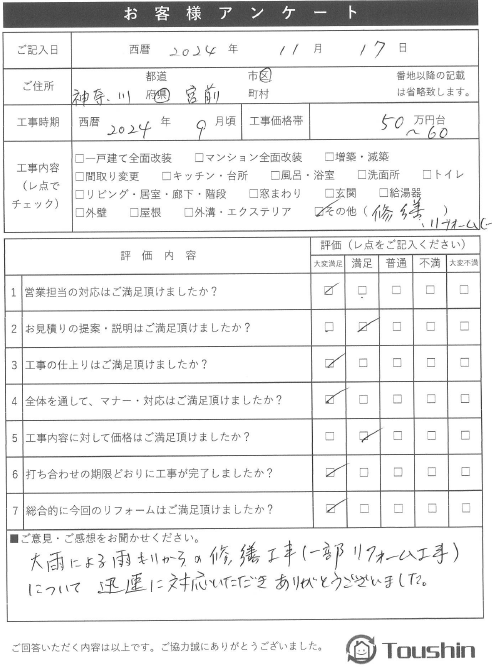 お客様アンケート
ご記入日 西暦 2024 年 11 月 17 日
ご住所 神奈川 都道府県 宮前 市区町村 番地以降の記載は省略致します。
工事時期 西暦 2024 年 9 月頃 工事価格帯 50 万円台 ～60
工事内容（レ点でチェック）
□一戸建て全面改装 □マンション全面改装 □増築・減築
□間取り変更 □キッチン・台所 □風呂・浴室 □洗面所 □トイレ
□リビング・居室・廊下・階段 □窓まわり □玄関 □給湯器
□外壁 □屋根 □外溝・エクステリア ☑その他（修繕、リフォーム）
評価内容 評価（レ点をご記入ください）
大変満足 満足 普通 不満 大変不満
1 営業担当の対応はご満足頂けましたか？ ☑ □ □ □ □
2 お見積りの提案・説明はご満足頂けましたか？ □ ☑ □ □ □
3 工事の仕上りはご満足頂けましたか？ ☑ □ □ □ □
4 全体を通して、マナー・対応はご満足頂けましたか？ ☑ □ □ □ □
5 工事内容に対して価格はご満足頂けましたか？ □ ☑ □ □ □
6 打ち合わせの期限どおりに工事が完了しましたか？ ☑ □ □ □ □
7 総合的に今回のリフォームはご満足頂けましたか？ ☑ □ □ □ □
■ご意見・ご感想をお聞かせください。
大雨による雨もりからの修繕工事(一部リフォーム工事)
について 迅速に対応いただきありがとうございました。
ご回答いただく内容は以上です。ご協力誠にありがとうございました。
Toushin